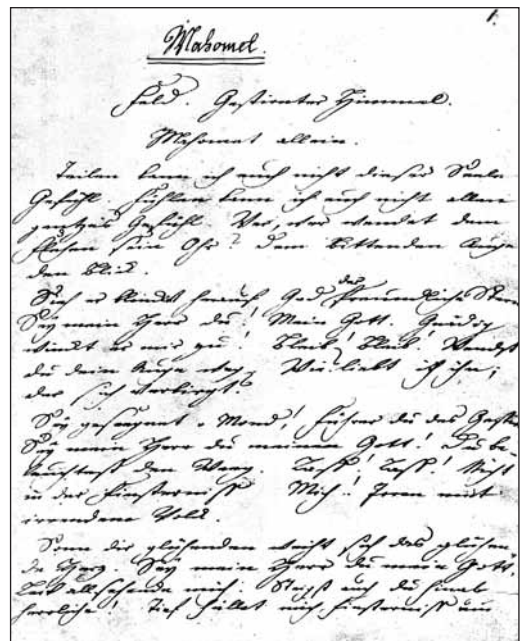 1.
Mahomet.
Feld. Gestirnter Himmel.
Mahomet allein.
Teilen kann ich euch nicht dieser Seele
Gefühl. Fühlen kann ich euch nicht allen
ganzes Gefühl. Wer, wer wendet dem
Flehen sein Ohr? Dem bittenden Auge
den Blick.
Sieh er blinket herauf Gad der freundliche Stern
Sey mein Herr du! Mein Gott. Gnädig
winkt er mir zu! Bleib! Bleib! Wendst
du dein Auge weg. Wie? liebt ich ihn,
der sich verbirgt?
Sey gesegnet o Mond! Führer du des Gestirns
Sey mein Herr du meinen Gott! Du be-
leuchtest den Weeg. Lass! Lass! Nicht
in der Finsterniss Mich! Irren mit
irrendem Volk.
Sonn dir glühenden weiht sich das glühen-
de Herz. Sey mein Herr du mein Gott.
Leit allsehende mich. Steigst auch du hinab
herrliche! Tief hüllet mich Finsterniss ein